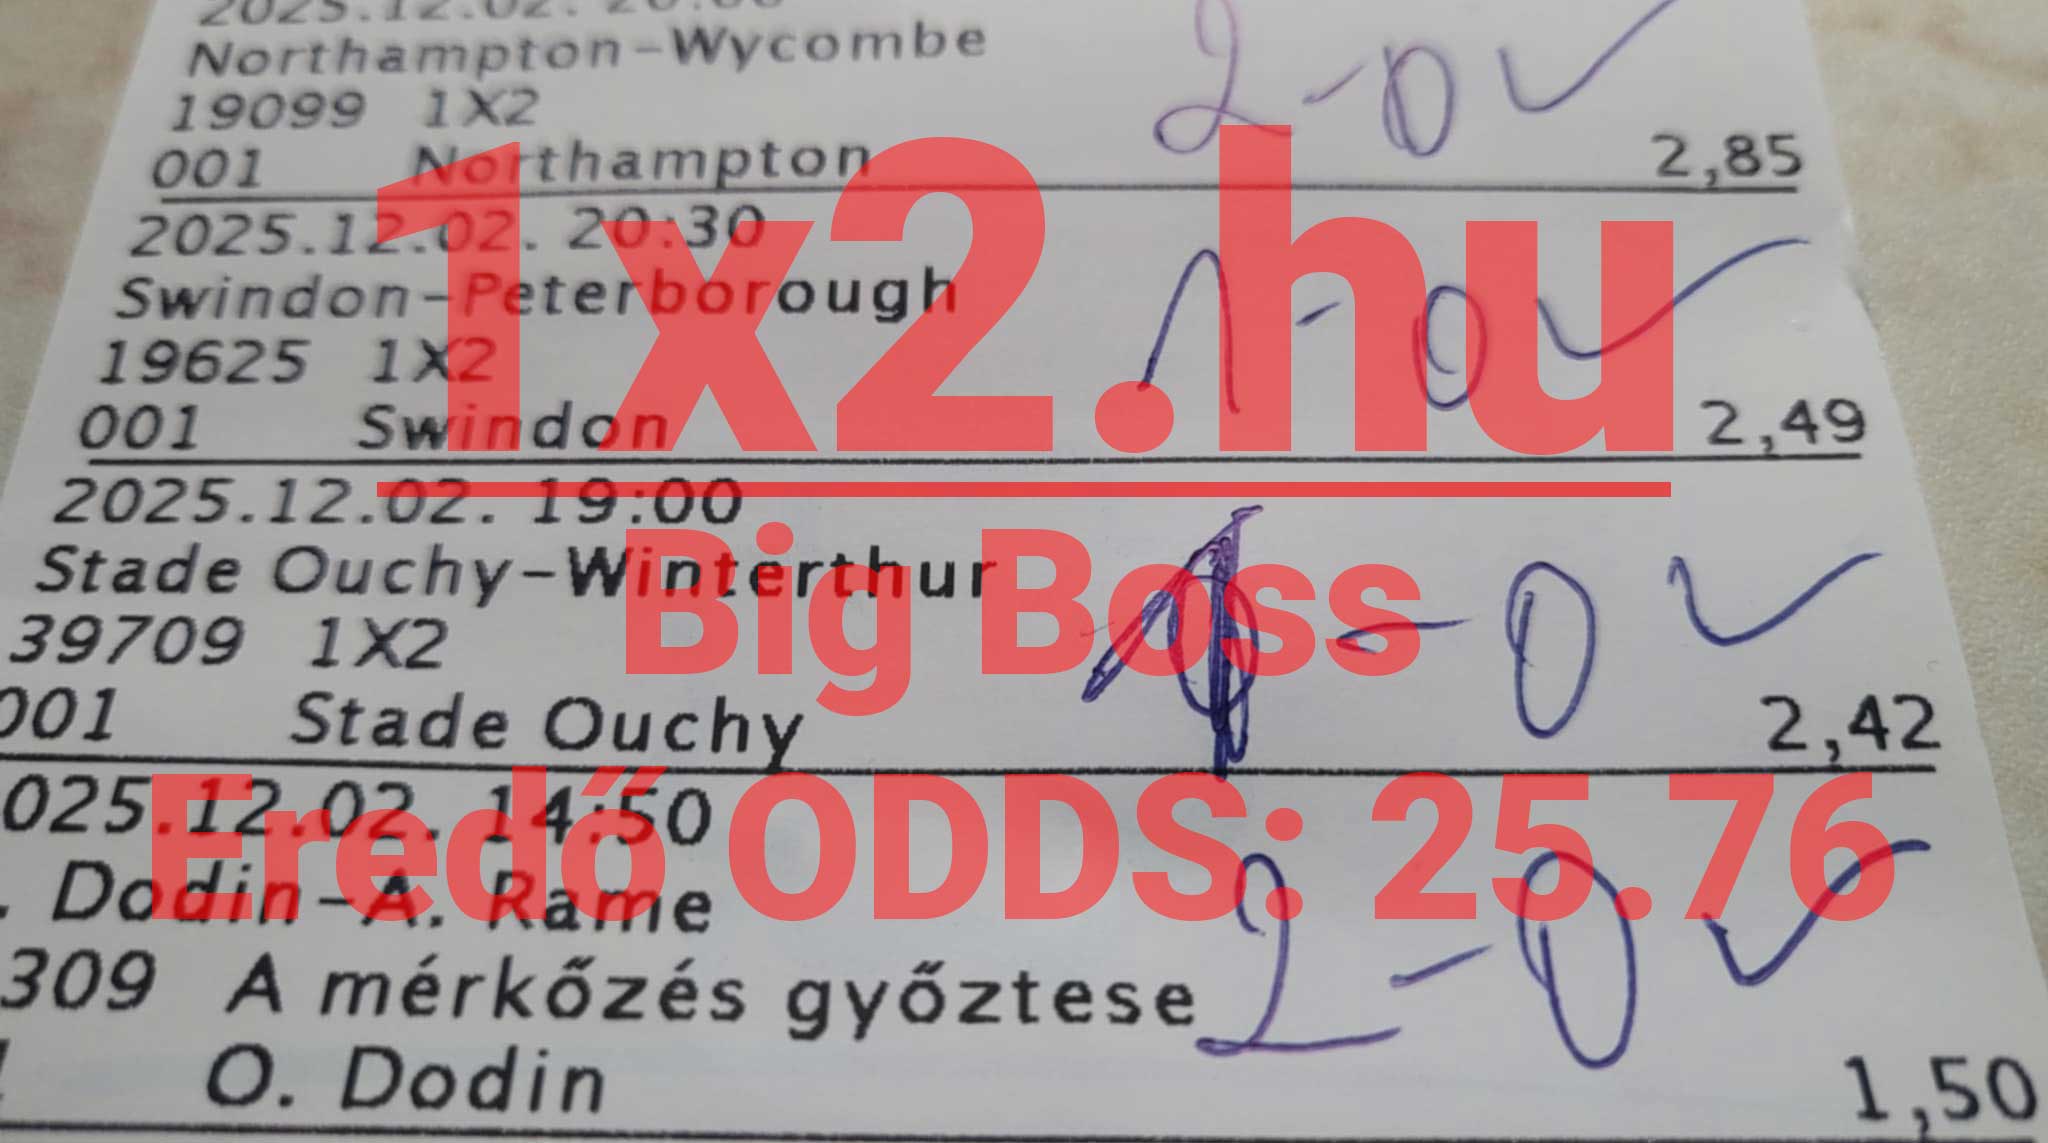 2025.12.02. 20:00
Northampton-Wycombe
2-0
19099 1X2
001 Northampton 2,85
2025.12.02. 20:30
Swindon-Peterborough
1-0
19625 1X2
001 Swindon 2,49
2025.12.02. 19:00
Stade Ouchy-Winterthur
-0
39709 1X2
001 Stade Ouchy 2,42
025.12.02. 14:50
. Dodin-A. Rame
2-0
309 A mérkőzés győztese
O. Dodin 1,50
1x2.hu
Big Boss
Eredő ODDS: 25.76